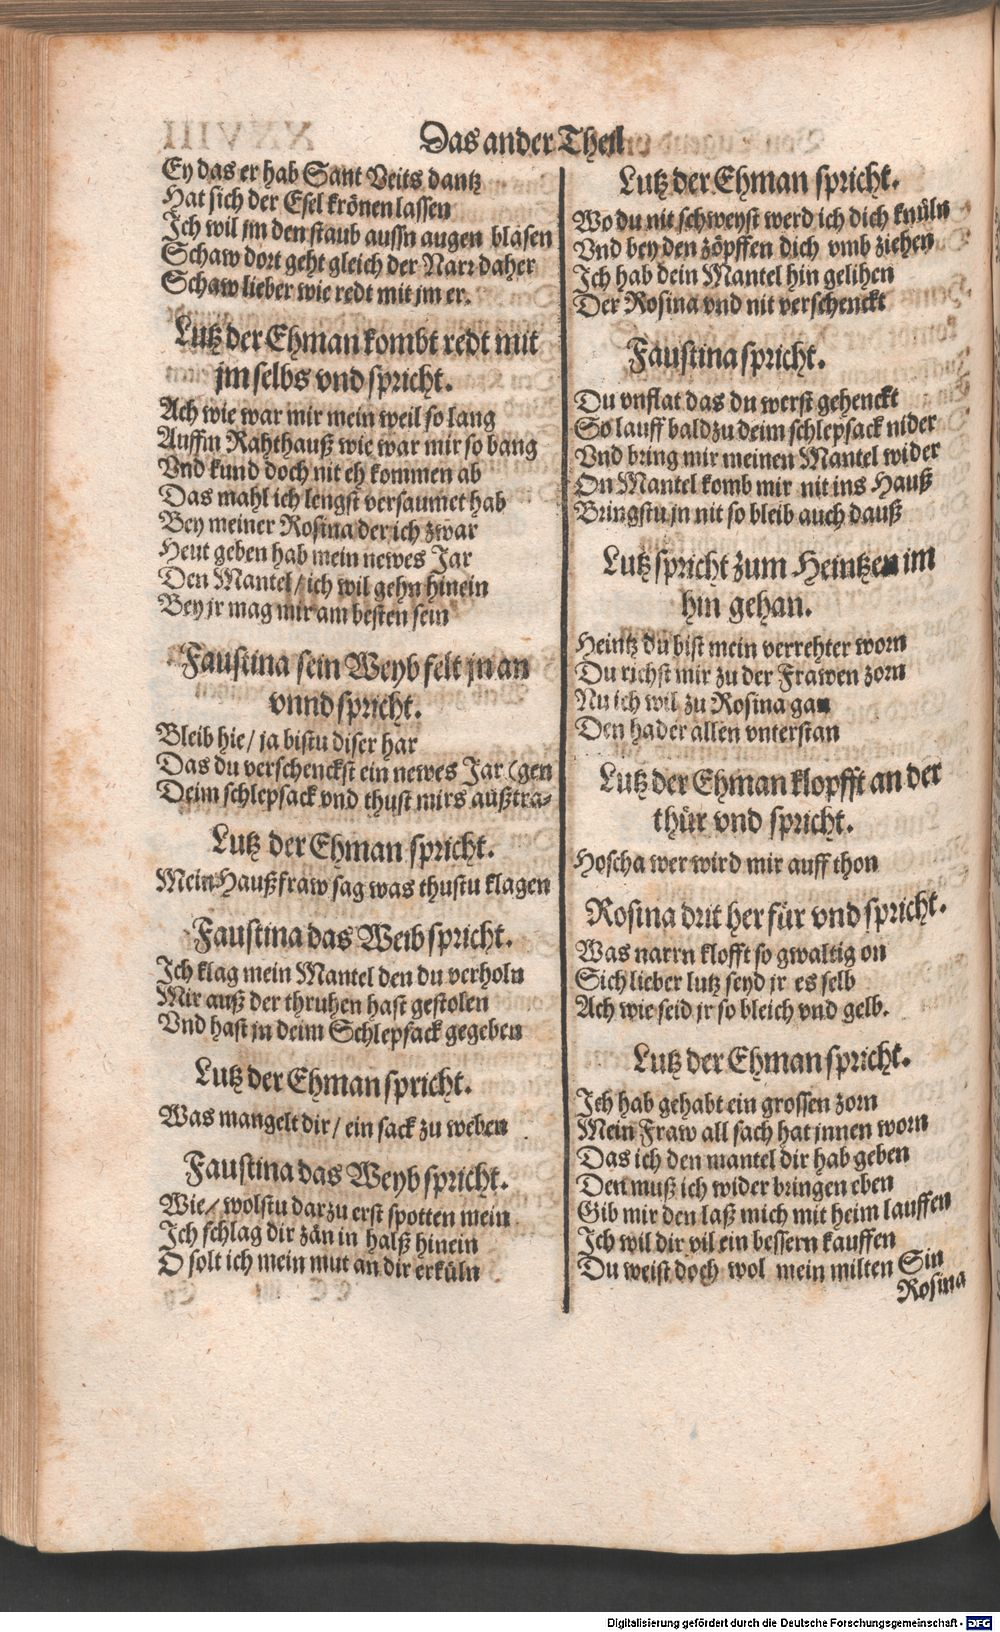 Das ander Theil
Ey das er hab Sant Veits dantz
Hat sich der Esel krönen lassen
Ich wil jm den staub aussn augen blasen
Schaw dort geht gleich der Narr daher
Schaw lieber wie redt mit jm er.
Lutz der Ehman kombt redt mit
jm selbs vnd spricht.
Ach wie war mir mein weil so lang
Auffm Rahthauß wie war mir so bang
Vnd kund doch nit eh kommen ab
Das mahl ich lengst versaumet hab
Bey meiner Rosina der ich zwar
Heut geben hab mein newes Jar
Den Mantel / ich wil gehn hinein
Bey jr mag mir am besten sein
Faustina sein Weyb felt jn an
vnnd spricht.
Bleib hie / ja bistu diser har
Das du verschenckst ein newes Jar (gen
Deim schlepsack vnd thust mirs außtra-
Lutz der Ehman spricht.
Mein Haußfraw sag was thustu klagen
Faustina das Weib spricht.
Ich klag mein Mantel den du verholn
Mir auß der thruhen hast gestolen
Vnd hast jn deim Schlepsack gegeben
Lutz der Ehman spricht.
Was mangelt dir / ein sack zu weben
Faustina das Weyb spricht.
Wie / wolstu darzu erst spotten mein
Ich schlag dir zän in halß hinein
O solt ich mein mut an dir erküln
Lutz der Ehman spricht.
Wo du nit schweyst werd ich dich knüln
Vnd bey den zöpffen dich vmb ziehen
Ich hab dein Mantel hin gelihen
Der Rosina vnd nit verschenckt
Faustina spricht.
Du vnflat das du werst gehenckt
So lauff bald zu deim schlepsack nider
Vnd bring mir meinen Mantel wider
On Mantel komb mir nit ins Hauß
Bringstu jn nit so bleib auch dauß
Lutz spricht zum Heintzen im
hin gehan.
Heintz du bist mein verrehter worn
Du richst mir zu der Frawen zorn
Nu ich wil zu Rosina gan
Den hader allen vnterstan
Lutz der Ehman klopfft an der
thür vnd spricht.
Hoscha wer wird mir auff thon
Rosina drit her für vnd spricht.
Was narrn klofft so gwaltig on
Sich lieber lutz seyd jr es selb
Ach wie seid jr so bleich vnd gelb.
Lutz der Ehman spricht.
Ich hab gehabt ein grossen zorn
Mein Fraw all sach hat jnnen worn
Das ich den mantel dir hab geben
Den muß ich wider bringen eben
Gib mir den laß mich mit heim lauffen
Ich wil dir vil ein bessern kauffen
Du weist doch wol mein milten Sin
Rosina
Digitalisierung gefördert durch die Deutsche Forschungsgemeinschaft - DFG